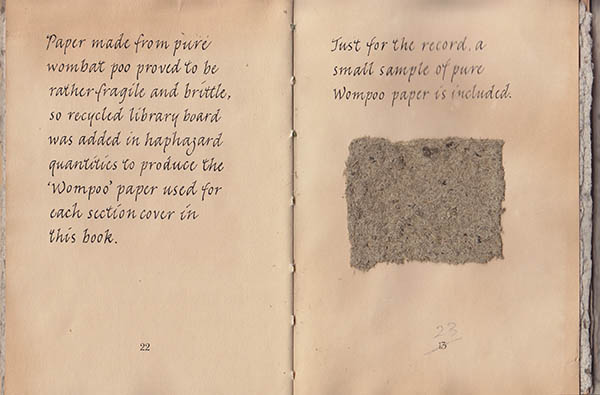 Paper made from pure
wombat poo proved to be
rather fragile and brittle,
so recycled library board
was added in haphazard
quantities to produce the
'Wompoo' paper used for
each section cover in
this book.
22
Just for the record, a
small sample of pure
Wompoo paper is included.
23
13